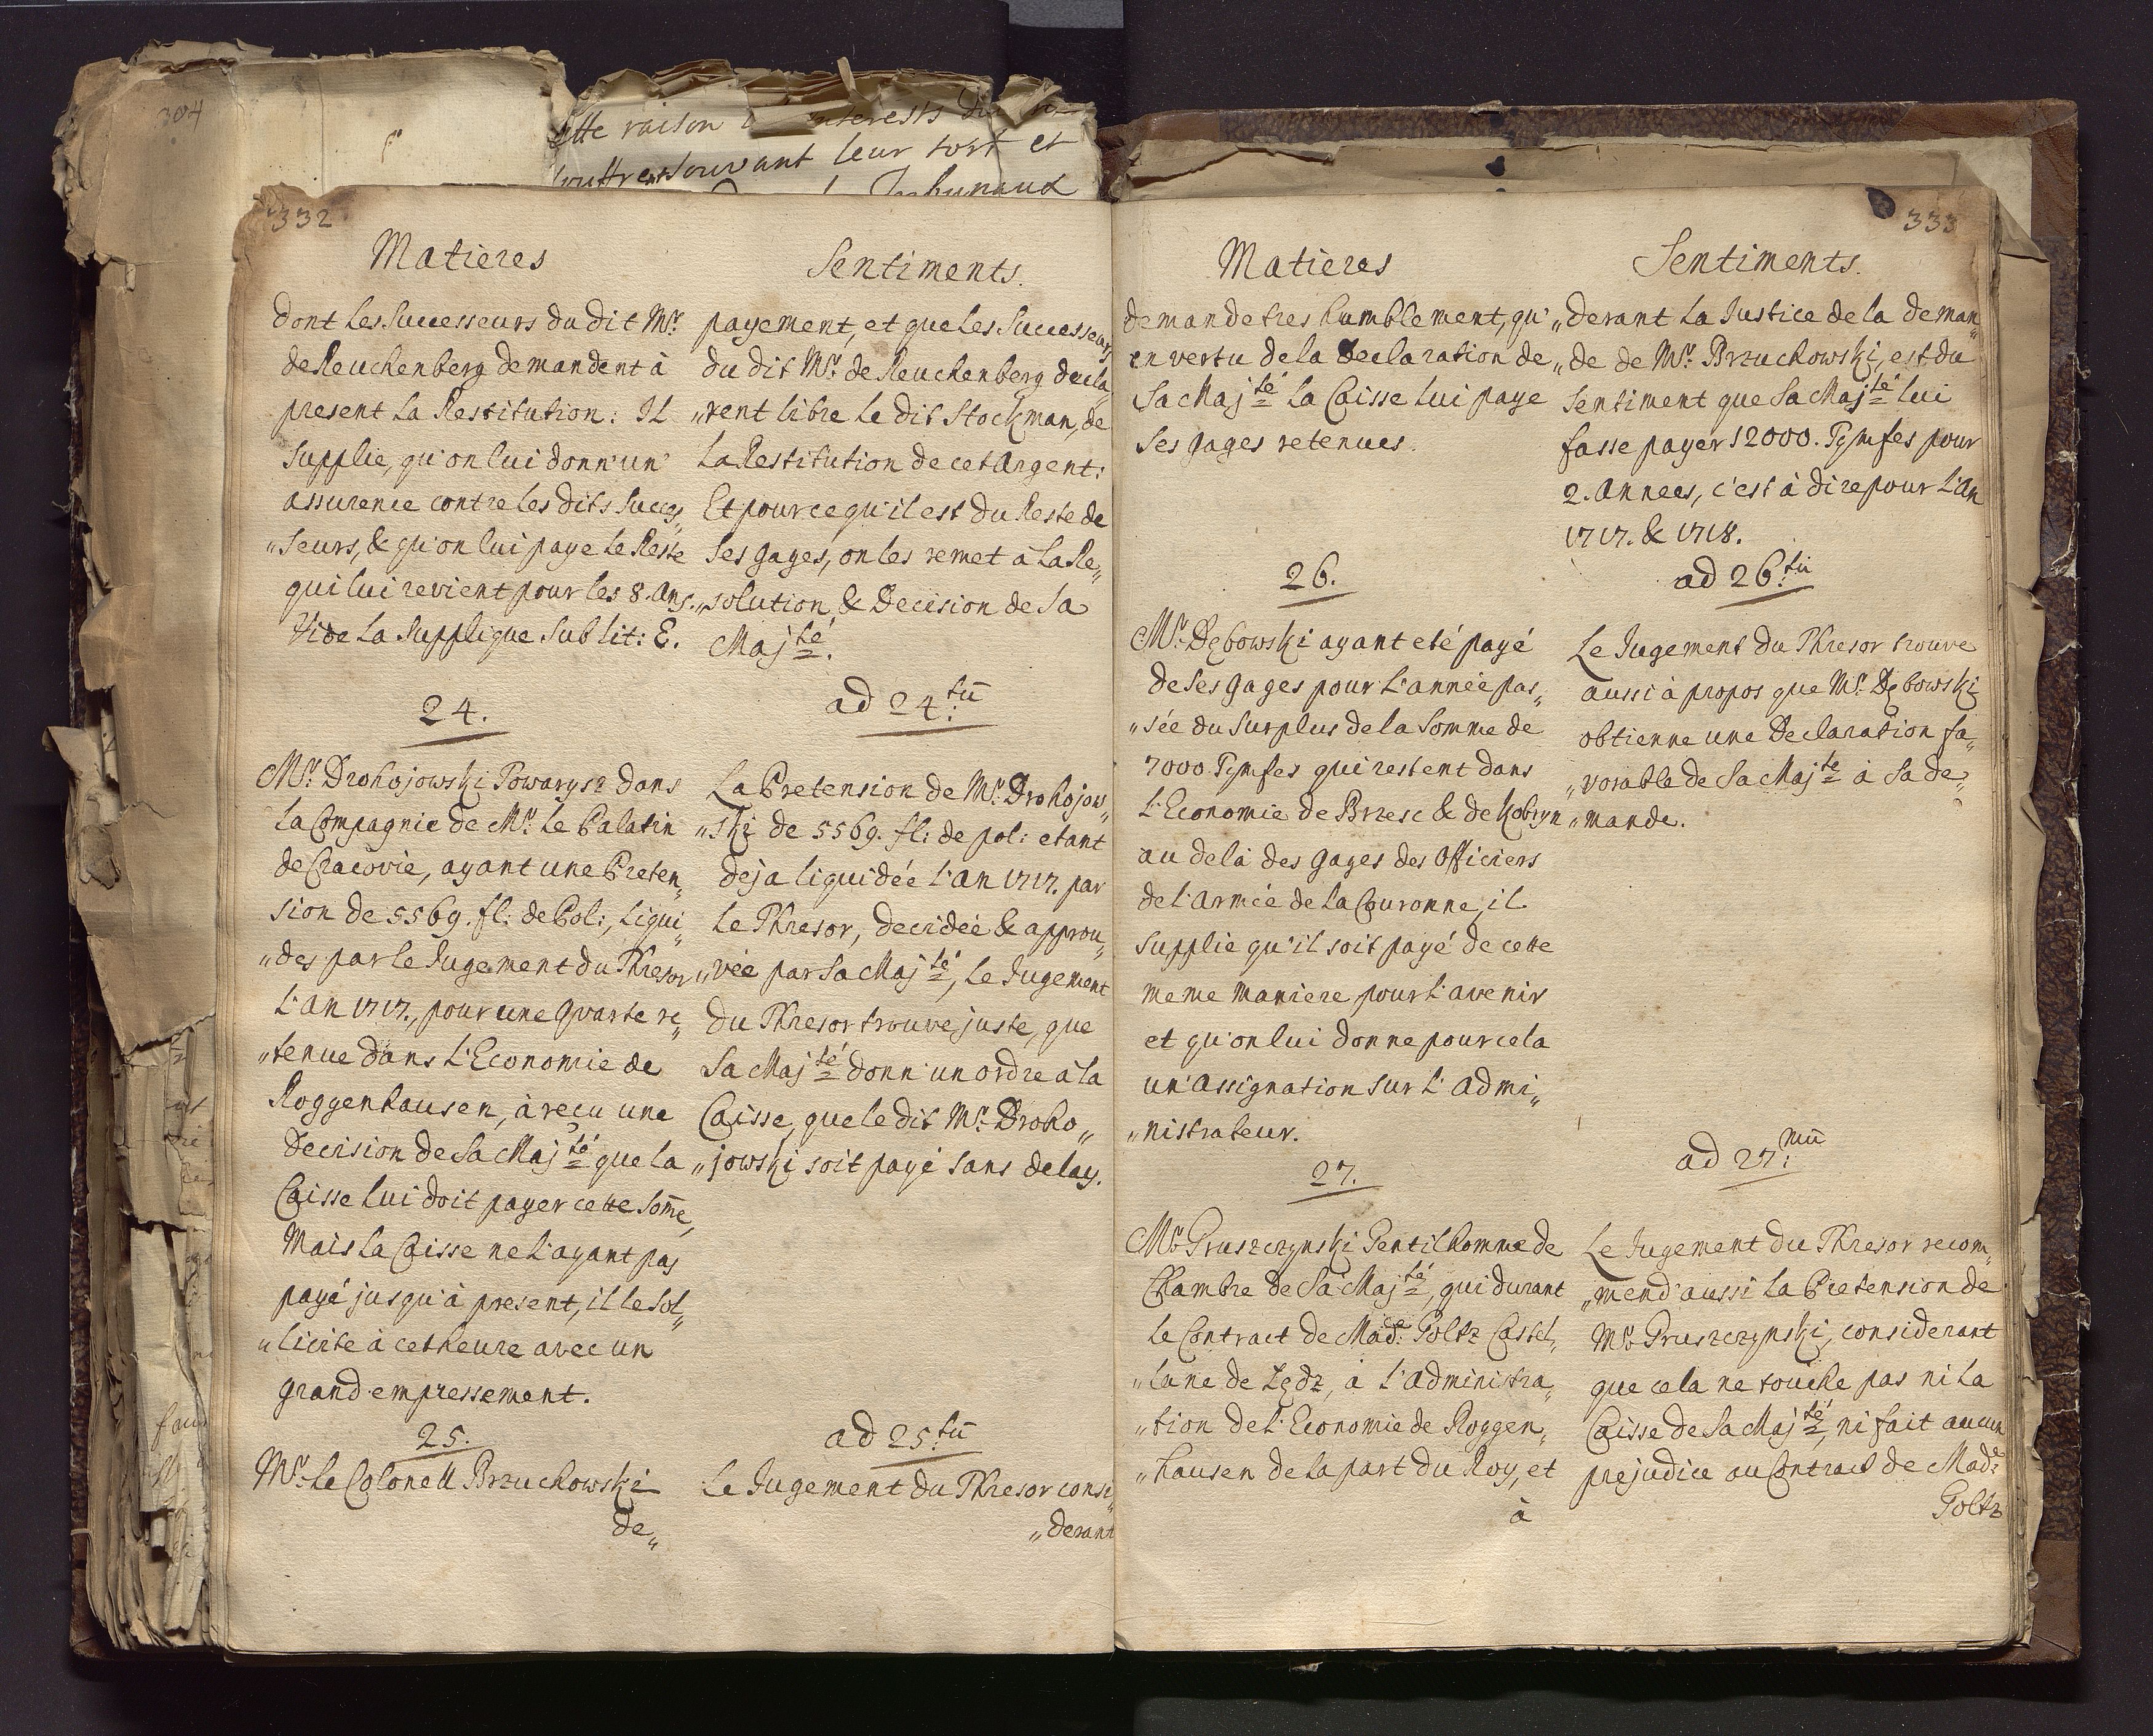 304
cette raison
souffrent souvant leur tort et
Tribunaux
332
Matieres
dont les Successeurs du dit Mr.
de Reuchenberg demandent à
present la Restitution: Il
supplie, qu'on lui donn'un'
assurence contre les dits Succes„
„seurs, & qu'on lui paye le Reste
qui lui revient pour les 8. Ans.
Vide la Supplique sub lit: E.
24.
Mr. Drohojowski Towarysz dans
la Compagnie de Mr. le Palatin
de Cracovie, ayant une Preten„
sion de 5569. fl: de Pol:, liqui„
„des par le Jugement du Thresor
L'an 1717., pour une Quarte re„
„tenue dans L'Economie de
Roggenhausen, à reçu une
Decision de Sa Majté que la
Caisse lui doit payer cette Som̄e,
Mais la Caisse ne l'ayant pas
payé jusqu'à present, il le sol„
„licite à cetheure avec un
grand empressement.
25.
Mr. le Colonell Brzuchowski
de„
Sentiments.
payement, et que les Successeurs
du dit Mr. de Reuchenberg decla„
„rent libre le dit Stockman, de
la Restitution de cet Argent:
Et pour ce qu'il est du Reste de
ses gages, on les remet à la Re„
„solution & Decision de Sa
Majté.
ad 24.tū
La Pretension de Mr. Drohojow„
„ski de 5569. fl: de pol: etant
deja liquidée l'an 1717. par
le Thresor, decidée & approu„
„vée par Sa Majté, le Jugement
du Thresor trouve juste, que
Sa Majté donn'un ordre à la
Caisse, que le dit Mr. Droho„
„jowski soit payé sans delay.
ad 25.tū
Le Jugement du Thresor consi„
„derant
333
Matieres
demande tres humblement, qu'
en vertu de la Declaration de
Sa Majté la Caisse lui paye
ses gages retenues.
26.
Mr. Dębowski ayant eté payé
de ses gages pour l'année pas„
„sée du surplus de la Somme de
7000 Tymfes qui restent dans
L'Economie de Brzesc & de Kobryn
au delà des gages des Officiers
de l'armée de la Couronne, il
supplie qu'il soit payé de cette
meme maniere pour l'avenir
et qu'on lui donne pour cela
un'Assignation sur l'admi„
„nistrateur.
27.
Mr. Gruszczynski Gentilhomme de
Chambre de Sa Majté, qui durant
le Contract de Made: Goltz Castel„
„lane de Lędz, a l'administra„
„tion de l'Economie de Roggen„
„hausen de la part du Roy, et
à
Sentiments.
„derant la Justice de la deman„
„de de Mr. Brzuchowski, est du
sentiment que Sa Majté lui
fasse payer 12000. Tymfes pour
2. Annees, c'est à dire pour l'an
1717. & 1718.
ad 26.tū
Le Jugement du Thresor trouve
aussi à propos que Mr. Dębowski
obtienne une Declaration fa„
„vorable de Sa Majté à sa de„
„mande.
ad 27.mū
Le Jugement du Thresor recom„
„mend'aussi la Pretension de
Mr. Gruszczynski, considerant
que cela ne touche pas ni la
Caisse de Sa Majté, ni fait aucun
prejudice au Contract de Made:
Goltz